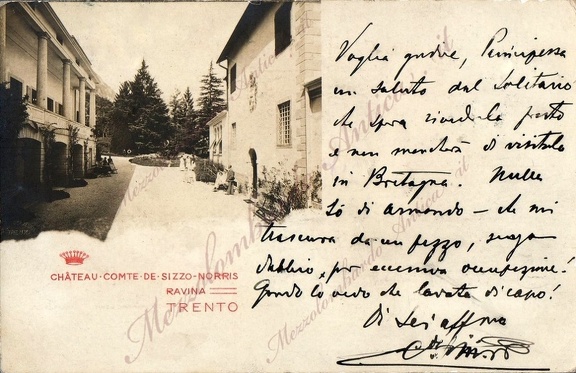 Voglia gradire, Principessa
un saluto dal solitario
che spera rivederla presto
e non mancherà di visitarla
in Bretagna. Nulla
so di Armando - che mi
trascura da un pezzo, senza
dubbio, per eccessiva occupazione!
Quando lo vedo che lavata di capo!
Di Lei aff.mo
CHÂTEAU·COMTE·DE·SIZZO·NORRIS
RAVINA
TRENTO
Mezzolombardo Antica.it
Mezzolombardo Antica.it